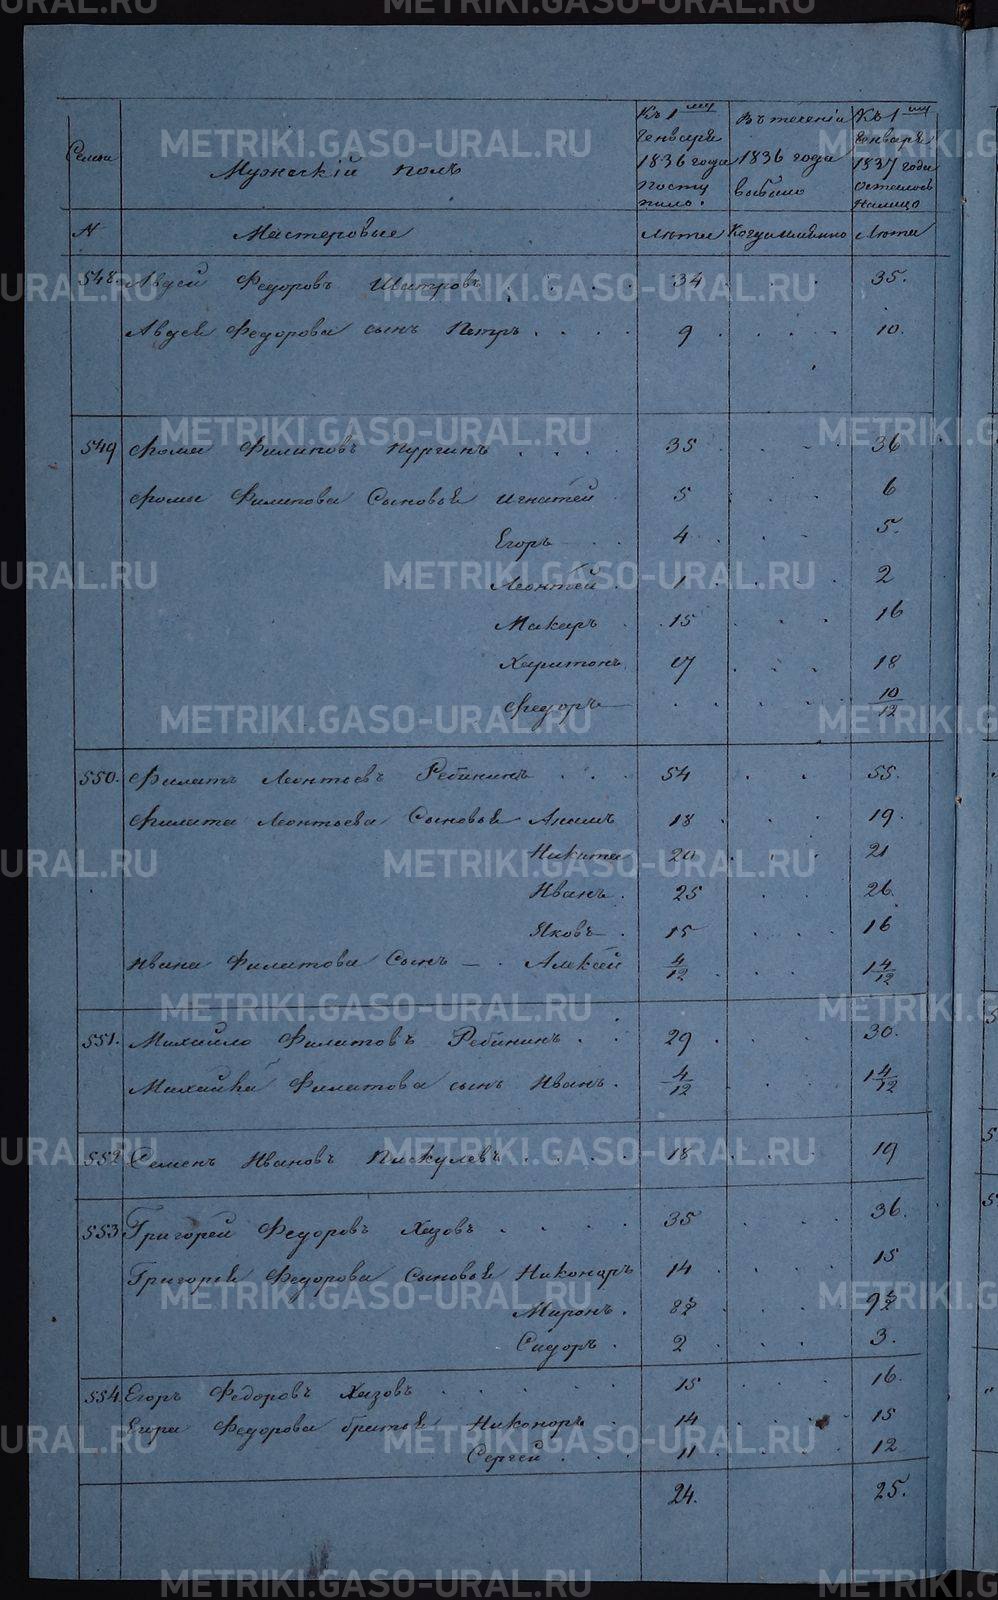 Семьи
Мужескій полъ
Къ 1му Генваря 1836 года поступило.
Въ теченіи 1836 года выбыло
Къ 1му Генваря 1837 года осталось налицо
N Мастеровые Лѣта Когда именно Лѣта
548. Авдей Федоровъ 34 35.
Авдея Федорова сынъ Петръ 9 10.
549 Фома Филиповъ Пургинъ 35 36
Фомы Филипова Сыновья Игнатей 5 6
Егоръ 4 5.
Леонтей 1 2
Макаръ 15 16
Харитонъ 17 18
Федоръ 10/12
550. Филатъ Леонтьевъ Ребининъ 54 55.
Филата Леонтьева Сыновья 18 19.
Никита 20 21
Иванъ 25 26.
Яковъ 15 16
Ивана Филатова Сынъ Алексѣй 4/12 1 4/12
551. Михайло Филатовъ Ребининъ 29 30.
Михайла Филатова сынъ Иванъ 4/12 1 4/12
552 Семенъ Ивановъ Пискулевъ 18 19
553 Григорей Федоровъ Хазовъ 35 36.
Григорья Федорова Сыновья Никоноръ 14 15
Миронъ 8½ 9½
Сидоръ 2 3.
554. Егоръ Федоровъ Хазовъ 15 16.
Егора Федорова братья Никоноръ 14 15
Сергей 11 12
24. 25.
METRIKI.GASO-URAL.RU